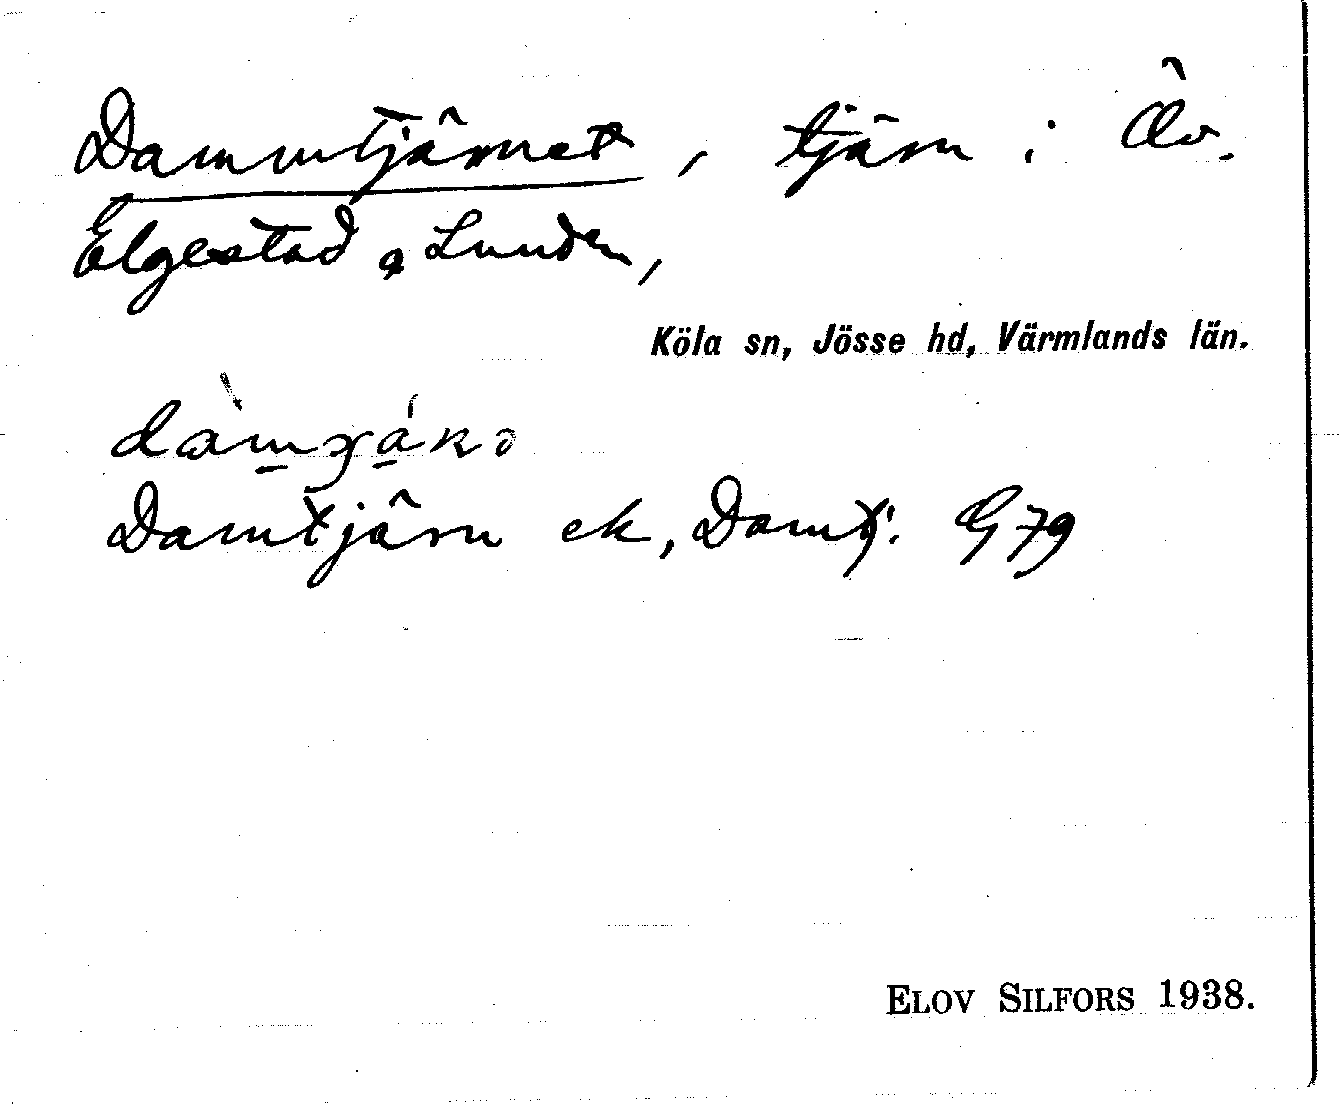 Dammtjärnet, tjärn i Öv.
Elgestad o Lunden,
Köla sn, Jösse hd, Värmlands län.
Damtjärn ek, Damtj. G 79
ELOV SILFORS 1938.